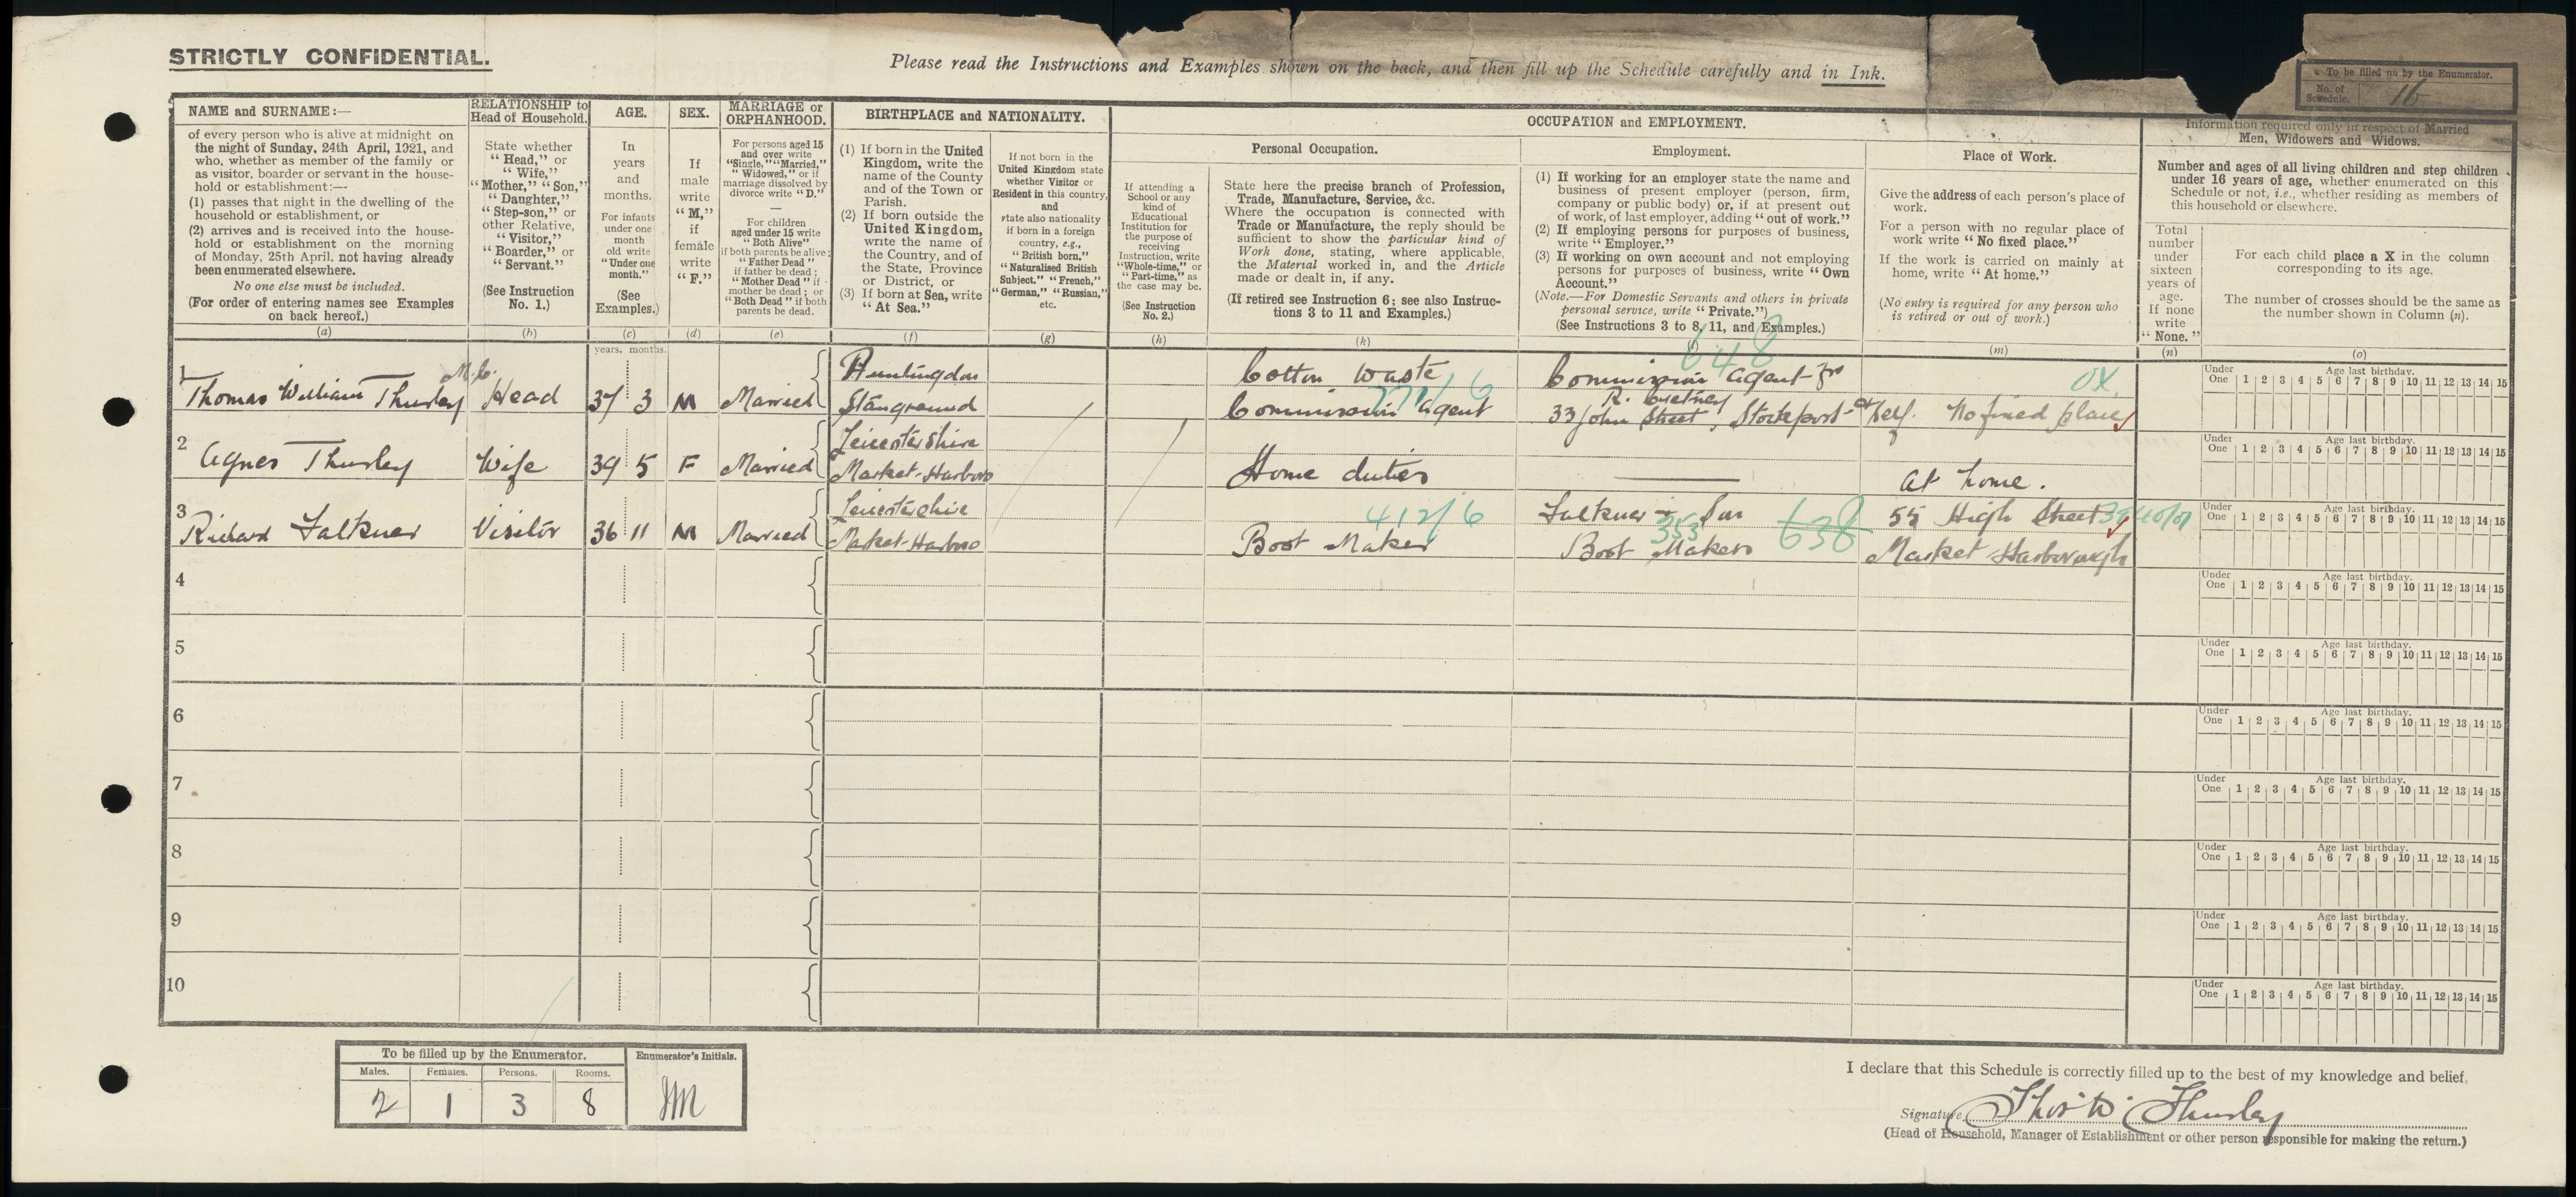 STRICTLY CONFIDENTIAL.
Please read the Instructions and Examples shown on the back, and then fill up the Schedule carefully and in Ink.
To be filled up by the Enumerator.
No. of Schedule. 16
NAME and SURNAME:—
of every person who is alive at midnight on
the night of Sunday, 24th April, 1921, and
who, whether as member of the family or
as visitor, boarder or servant in the house-
hold or establishment:—
(1) passes that night in the dwelling of the
household or establishment, or
(2) arrives and is received into the house-
hold or establishment on the morning
of Monday, 25th April, not having already
been enumerated elsewhere.
No one else must be included.
(For order of entering names see Examples
on back hereof.)
(a)
RELATIONSHIP to
Head of Household.
State whether
"Head," or
"Wife,"
"Mother," "Son,"
"Daughter,"
"Step-son," or
other Relative,
"Visitor,"
"Boarder," or
"Servant."
(See Instruction
No. 1.)
(b)
AGE.
In
years
and
months.
For infants
under one
month
old write
"Under one
month."
(See
Examples.)
(c)
SEX.
If
male
write
"M,"
if
female
write
"F."
(d)
MARRIAGE or
ORPHANHOOD.
For persons aged 15
and over write
"Single," "Married,"
"Widowed," or if
marriage dissolved by
divorce write "D."
—
For children
aged under 15 write
"Both Alive"
if both parents be alive;
"Father Dead"
if father be dead;
"Mother Dead" if
mother be dead; or
"Both Dead" if both
parents be dead.
(e)
BIRTHPLACE and NATIONALITY.
(1) If born in the United
Kingdom, write the
name of the County
and of the Town or
Parish.
(2) If born outside the
United Kingdom,
write the name of
the Country, and of
the State, Province
or District, or
(3) If born at Sea, write
"At Sea."
(f)
If not born in the
United Kingdom state
whether Visitor or
Resident in this country,
and
state also nationality
if born in a foreign
country, e.g.,
"British born,"
"Naturalised British
Subject," "French,"
"German," "Russian,"
etc.
(g)
OCCUPATION and EMPLOYMENT.
If attending a
School or any
kind of
Educational
Institution for
the purpose of
receiving
Instruction, write
"Whole-time," or
"Part-time," as
the case may be.
(See Instruction
No. 2.)
(h)
Personal Occupation.
State here the precise branch of Profession,
Trade, Manufacture, Service, &c.
Where the occupation is connected with
Trade or Manufacture, the reply should be
sufficient to show the particular kind of
Work done, stating, where applicable,
the Material worked in, and the Article
made or dealt in, if any.
(If retired see Instruction 6; see also Instruc-
tions 3 to 11 and Examples.)
(k)
Employment.
(1) If working for an employer state the name and
business of present employer (person, firm,
company or public body) or, if at present out
of work, of last employer, adding "out of work."
(2) If employing persons for purposes of business,
write "Employer."
(3) If working on own account and not employing
persons for purposes of business, write "Own
Account."
(Note.—For Domestic Servants and others in private
personal service, write "Private.")
(See Instructions 3 to 8, 11, and Examples.)
(l)
Place of Work.
Give the address of each person's place of
work.
For a person with no regular place of
work write "No fixed place."
If the work is carried on mainly at
home, write "At home."
(No entry is required for any person who
is retired or out of work.)
(m)
Information required only in respect of Married
Men, Widowers and Widows.
Number and ages of all living children and step children
under 16 years of age, whether enumerated on this
Schedule or not, i.e., whether residing as members of
this household or elsewhere.
Total
number
under
sixteen
years of
age.
If none
write
"None."
(n)
For each child place a X in the column
corresponding to its age.
The number of crosses should be the same as
the number shown in Column (n).
(o)
years. months.
1 Thomas William Thursley Head 37 3 M Married Huntingdon Stanground Cotton Waste Commission Agent 771/6 648 Commission Agent for
33 John Street, Stockport & self. No fixed place OX
2 Agnes Thursley Wife 39 5 F Married Leicestershire Market-Harboro Home duties At home.
3 Richard Falkner Visitor 36 11 M Married Leicestershire Market-Harboro 412/6 Boot Maker Falkner & Son Boot Makers 353 638 55 High Street Market Harborough
4
5
6
7
8
9
10
Under One 1 2 3 4 5 6 7 8 9 10 11 12 13 14 15
Age last birthday.
Under One 1 2 3 4 5 6 7 8 9 10 11 12 13 14 15
Age last birthday.
Under One 1 2 3 4 5 6 7 8 9 10 11 12 13 14 15
Age last birthday.
Under One 1 2 3 4 5 6 7 8 9 10 11 12 13 14 15
Age last birthday.
Under One 1 2 3 4 5 6 7 8 9 10 11 12 13 14 15
Age last birthday.
Under One 1 2 3 4 5 6 7 8 9 10 11 12 13 14 15
Age last birthday.
Under One 1 2 3 4 5 6 7 8 9 10 11 12 13 14 15
Age last birthday.
Under One 1 2 3 4 5 6 7 8 9 10 11 12 13 14 15
Age last birthday.
Under One 1 2 3 4 5 6 7 8 9 10 11 12 13 14 15
Age last birthday.
Under One 1 2 3 4 5 6 7 8 9 10 11 12 13 14 15
Age last birthday.
To be filled up by the Enumerator.
Enumerator's Initials.
Males. Females. Persons. Rooms.
2 1 3 8
I declare that this Schedule is correctly filled up to the best of my knowledge and belief,
Signature Thos W Thursley
(Head of Household, Manager of Establishment or other person responsible for making the return.)